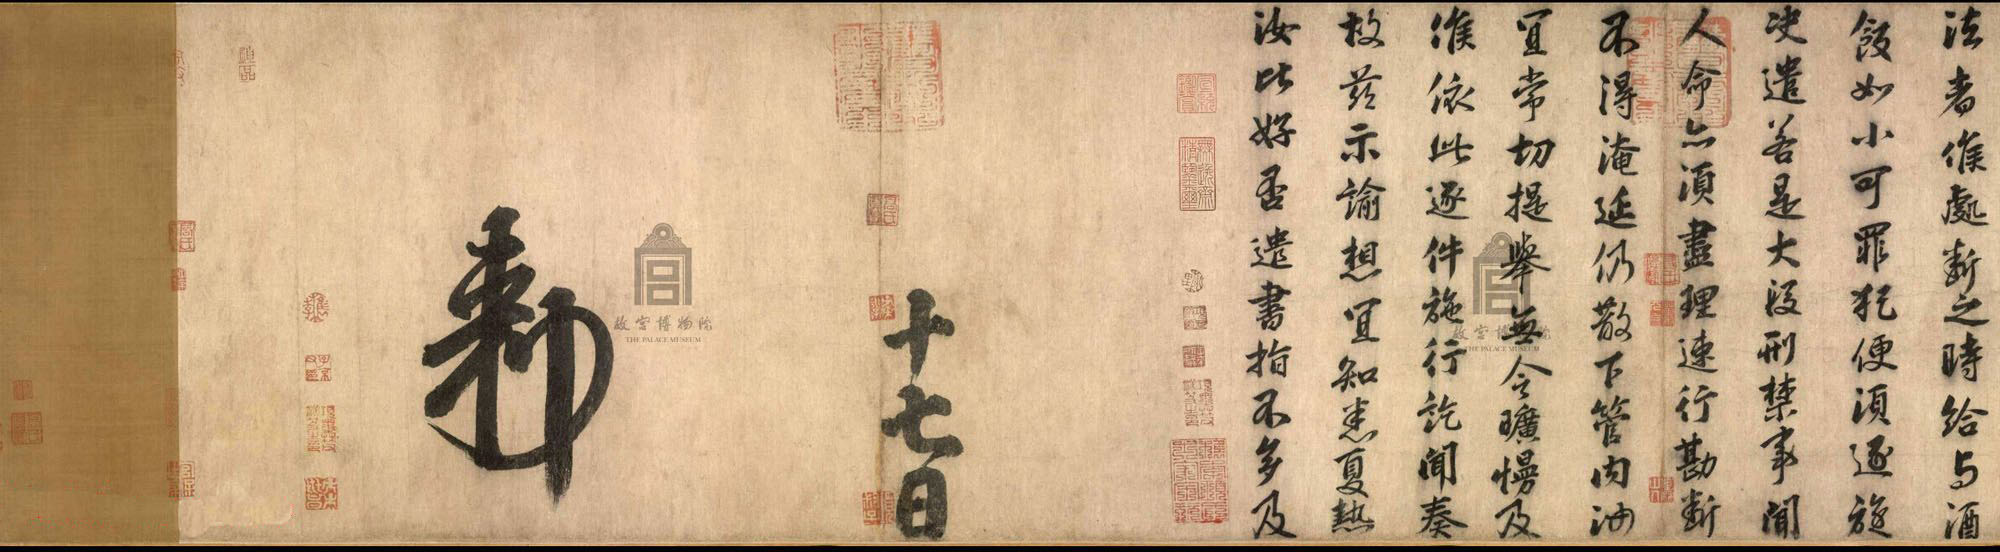 法者候處斷之時給与酒
飯如小可罪犯便湏逐旋
决遣若是大叚刑禁事聞
人命亦湏盡理速行勘斷
不得淹延仍散下管内油
冝常切提舉無令曠慢及
候依此逐件施行訖聞奏
故茲示諭想冝知悉夏熱
汝比好否遣書指不多及
十七日
勅
故宫博物院
THE PALACE MUSEUM
故宫博物院
THE PALACE MUSEUM